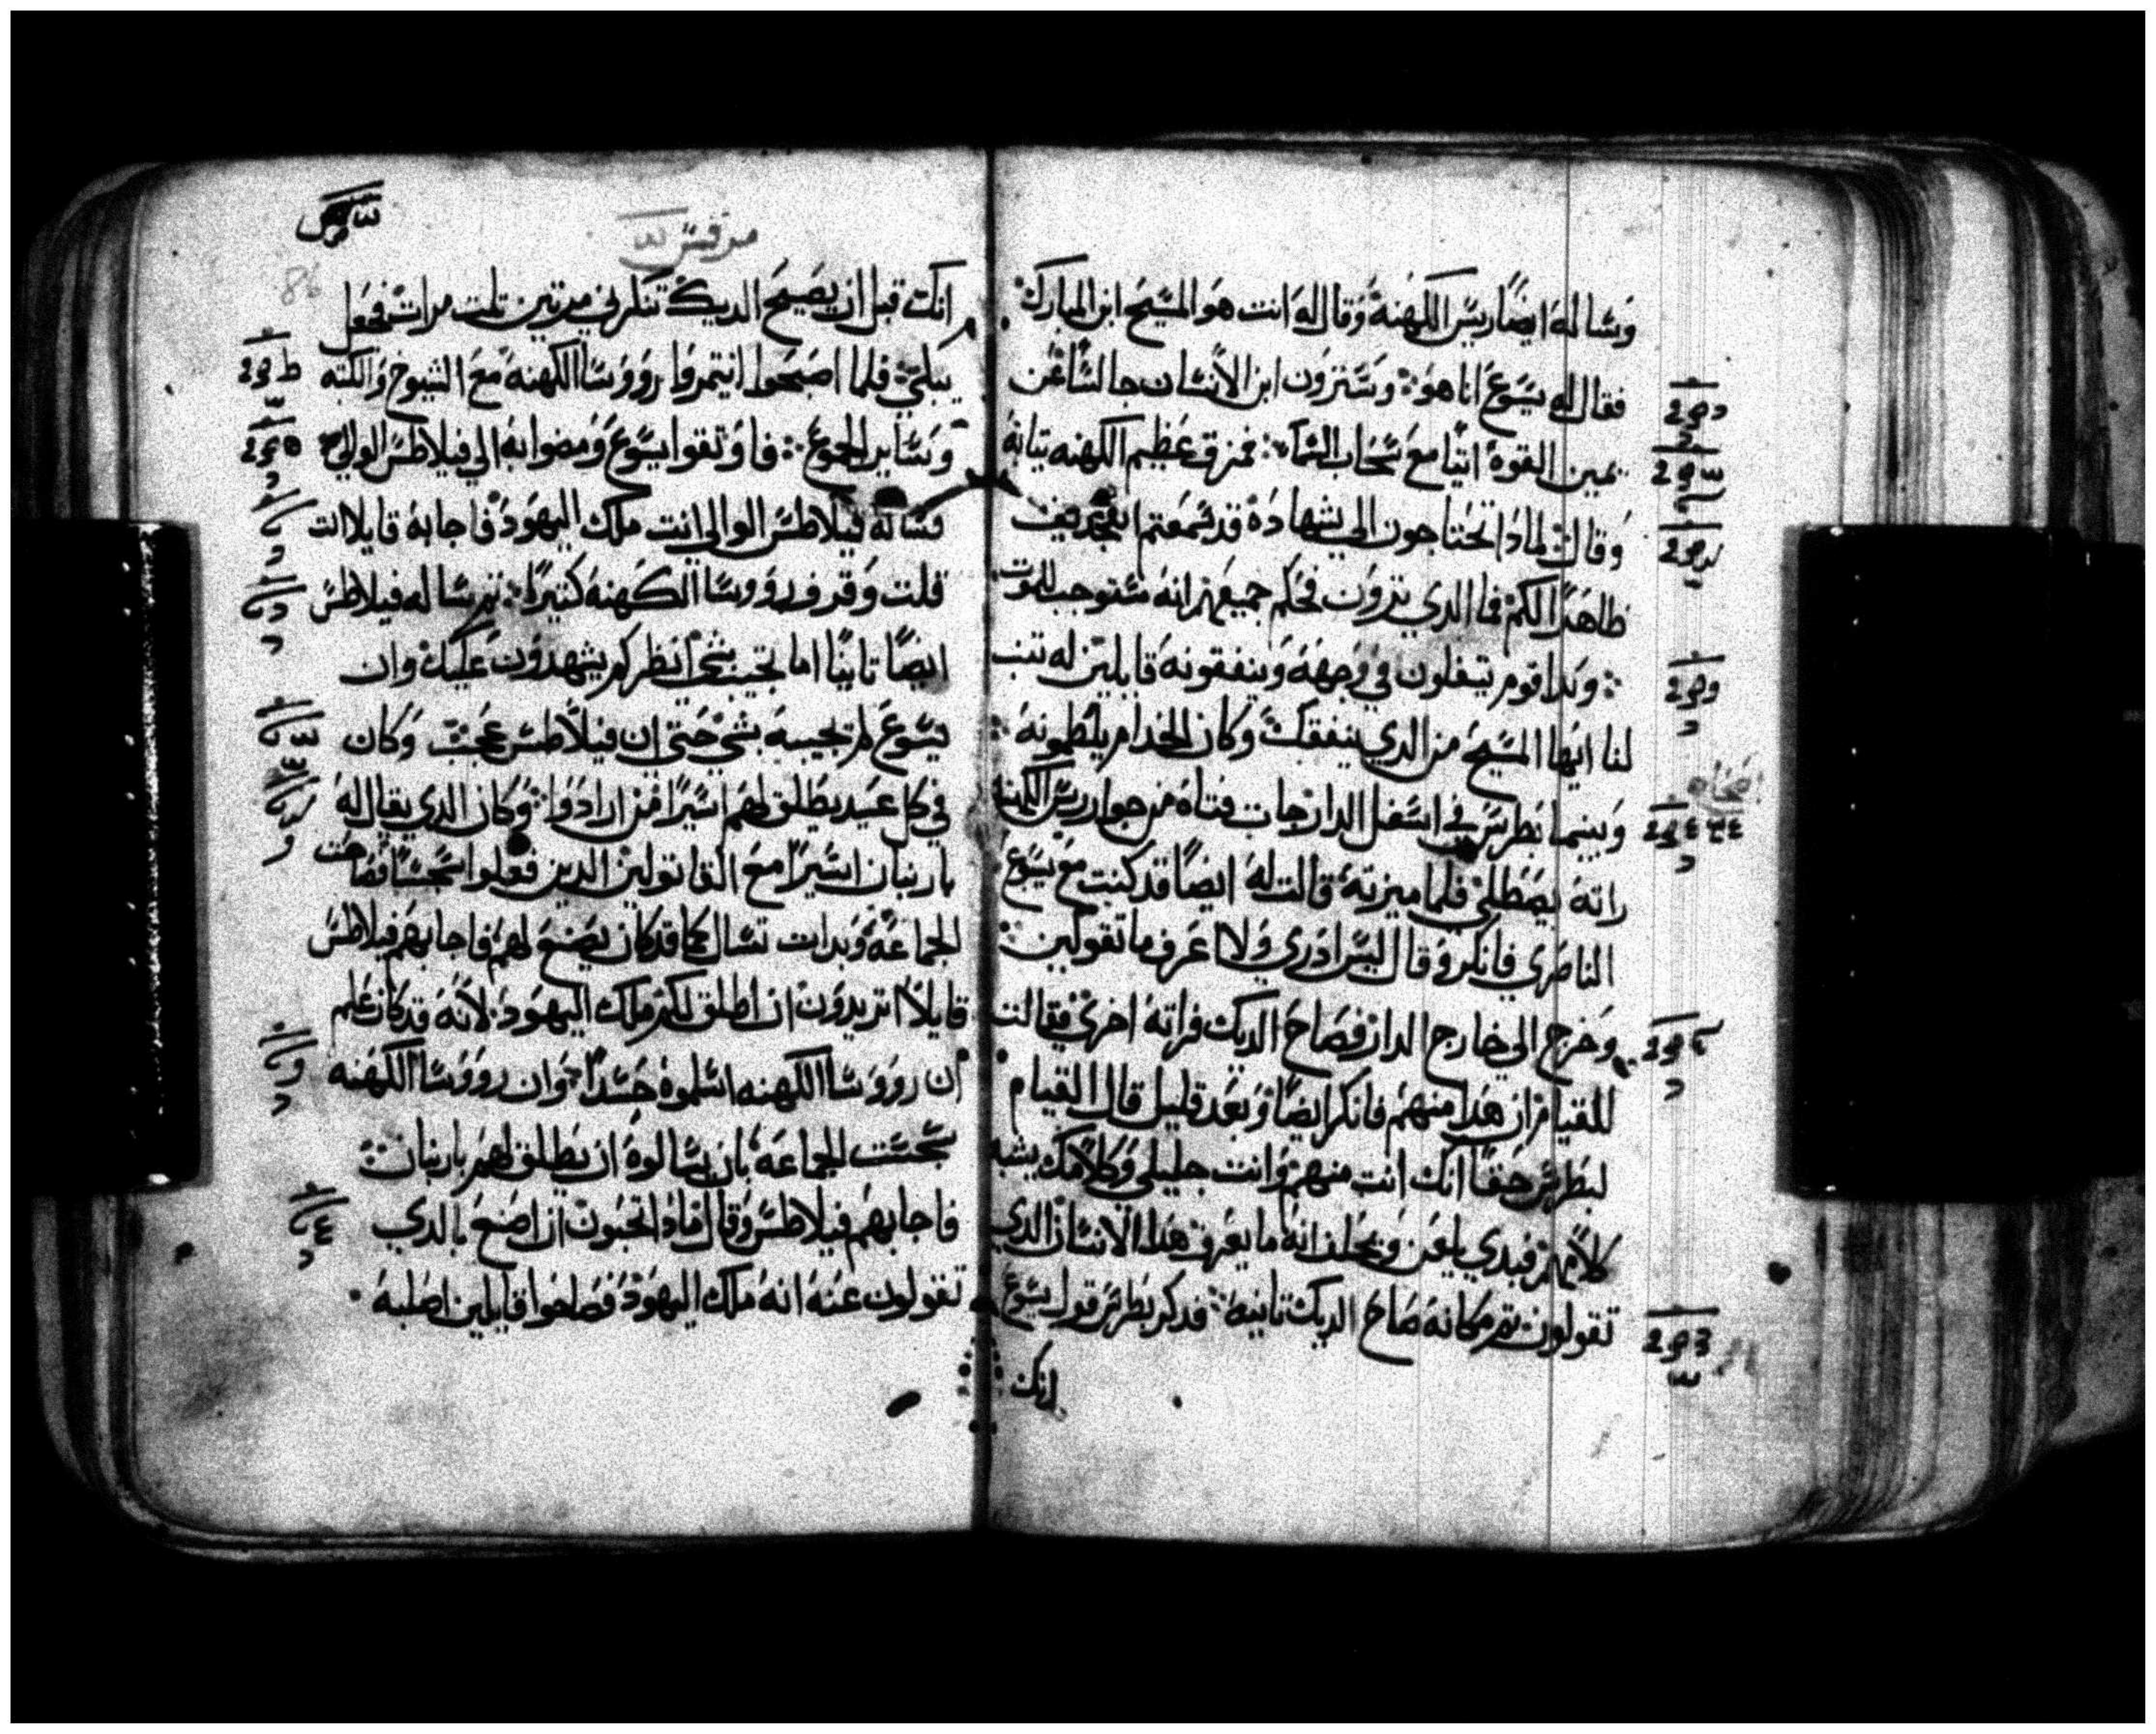 وساله ايضا ريس الكهنة وقال له انت هو المسيح ابن المبارك
فقال له يسوع انا هو وسترون ابن الانسان جالسا عن
يمين القوة اتيا مع سحاب السما فمزق عظيم الكهنه تيابه
وقال لمادا تحتاجون الي شهادة قد سمعتم التجديف
ظاهدا لكم فما الدي ترون فحكم جميعهم انه مستوجب الموت
وبدا قوم يتفلون في وجهه وينفقونه قايلين له تنب
لنا ايها المسيح من الدي ينفقك وكان الخدام يلطمونه
وبينما بطرس في اسفل الدار جات فتاة من جوار ريس الكهنة
راته يصطلي فلما ميزته قالت له ايضا قد كنت مع يسوع
الناصري فانكر وقال ليس ادري ولا اعرف ما تقولين
وخرج الي خارج الدار فصاح الديك فراته اخري فقالت
للقيام ان هدا منهم فانكر ايضا وبعد قليل قال القيام
لبطرس حقا انك انت منهم وانت جليلي وكلامك يشبه
كلامهم فبدي يلعن ويحلف انه ما يعرف هدا الانسان الدي
تقولون تم مكانه صاح الديك تانيه فدكر بطرس قول يسوع
انك
مرقس
86
انك قبل ان يصيح الديك تنكرني مرتين تلت مرات فجعل
يبكي فلما اصبحوا ايتمروا رووسا الكهنه مع الشيوخ والكتبه
وساير الجوع فاوتقوا يسوع ومضوا به الي فيلاطس الوالي
فساله فيلاطس الوالي انت ملك اليهود فاجابه قايلا انت
قلت وقرفوه رووسا الكهنه كتيرا تم ساله فيلاطس
ايضا تانيا اما تجيب بشي انظر كم يشهدون عليك وان
يسوع لم يجيبه بشي حتي ان فيلاطس عجب وكان
في كل عيد يطلق لهم اسيرا من ارادوا وكان الدي يقال له
بارنبان اسيرا مع القاتولين الدين فعلوا سجسا فصاحت
الجماعة وبدات تسال كما قد كان يصنع لهم فاجابهم فيلاطس
قايلا اتريدون ان اطلق لكم ملك اليهود لانه قد كان علم
ان رووسا الكهنه اسلموه حسدا وان رووسا الكهنه
سجست الجماعه بان يسالوه ان يطلق لهم بارنبان
فاجابهم فيلاطس وقال فمادا تحبون ان اصنع بالدي
تقولون عنه انه ملك اليهود فصاحوا قايلين اصلبه